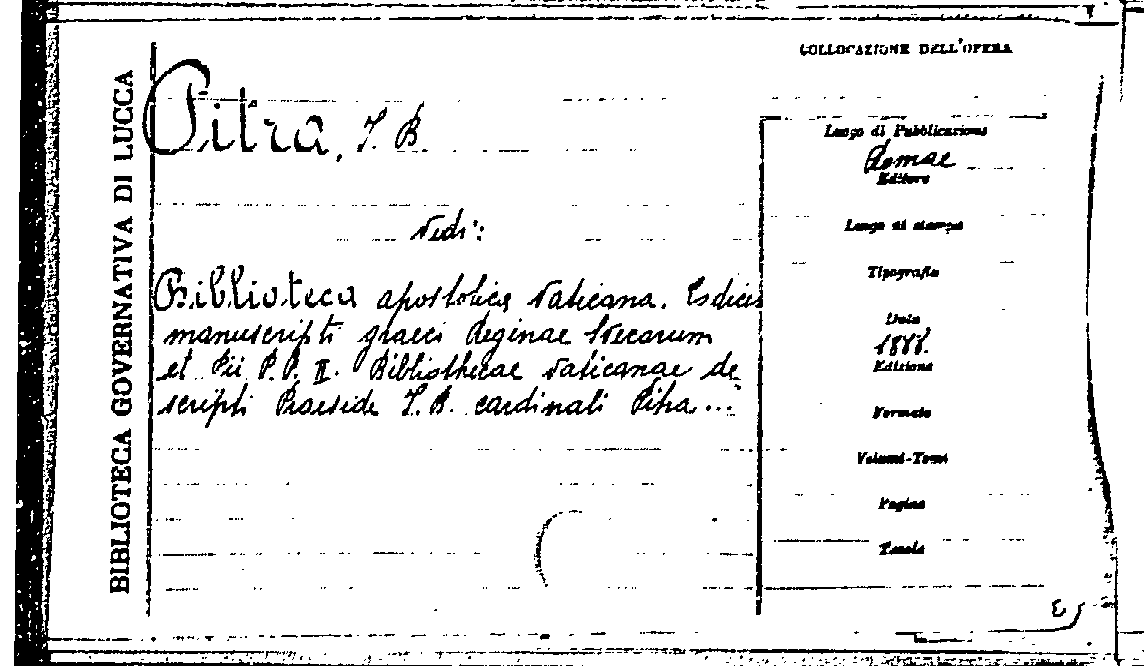 BIBLIOTECA GOVERNATIVA DI LUCCA
COLLOCAZIONE DELL'OPERA
Pitra, J. B.
Vedi:
Biblioteca apostolica Vaticana. Codices
manuscripti graeci Reginae Svecorum
et Pii P.P. II. Bibliothecae Vaticanae de
scripti Praeside J. B. cardinali Pitra...
Luogo di Pubblicazione
Romae
Editore
Luogo di stampa
Tipografia
Data
1888.
Edizione
Formato
Volumi-Tomi
Pagine
Tavole